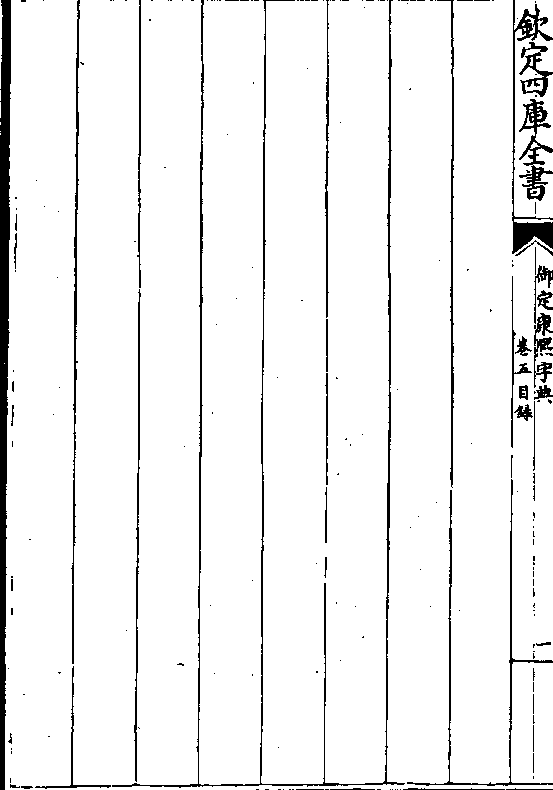 欽定四庫全書
御定康熙字典
卷五目錄
一